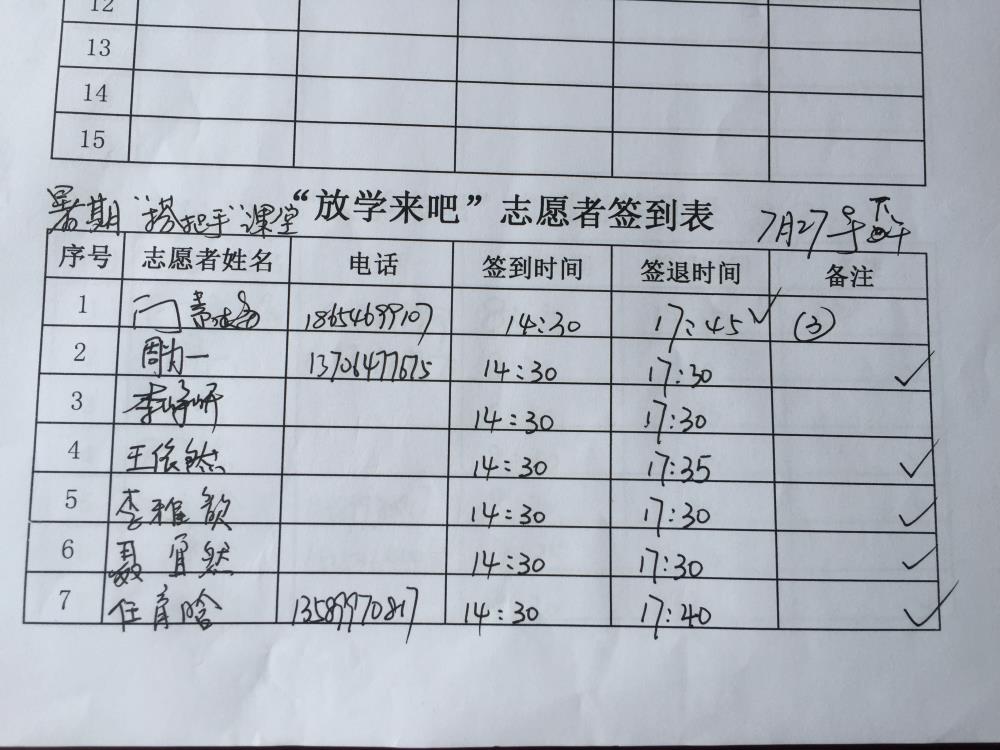 12
13
14
15
暑期"搭起手"课堂 "放学来吧"志愿者签到表 7月27号下午
序号 志愿者姓名 电话 签到时间 签退时间 备注
1 门 18654699107 14:30 17:45 ✓ (3)
2 周为一 13706477675 14:30 17:30 ✓
3 李峥妍 14:30 17:30
4 王依然 14:30 17:35 ✓
5 李雅歆 14:30 17:30 ✓
6 聂宜然 14:30 17:30 ✓
7 任育晗 13589970817 14:30 17:40 ✓